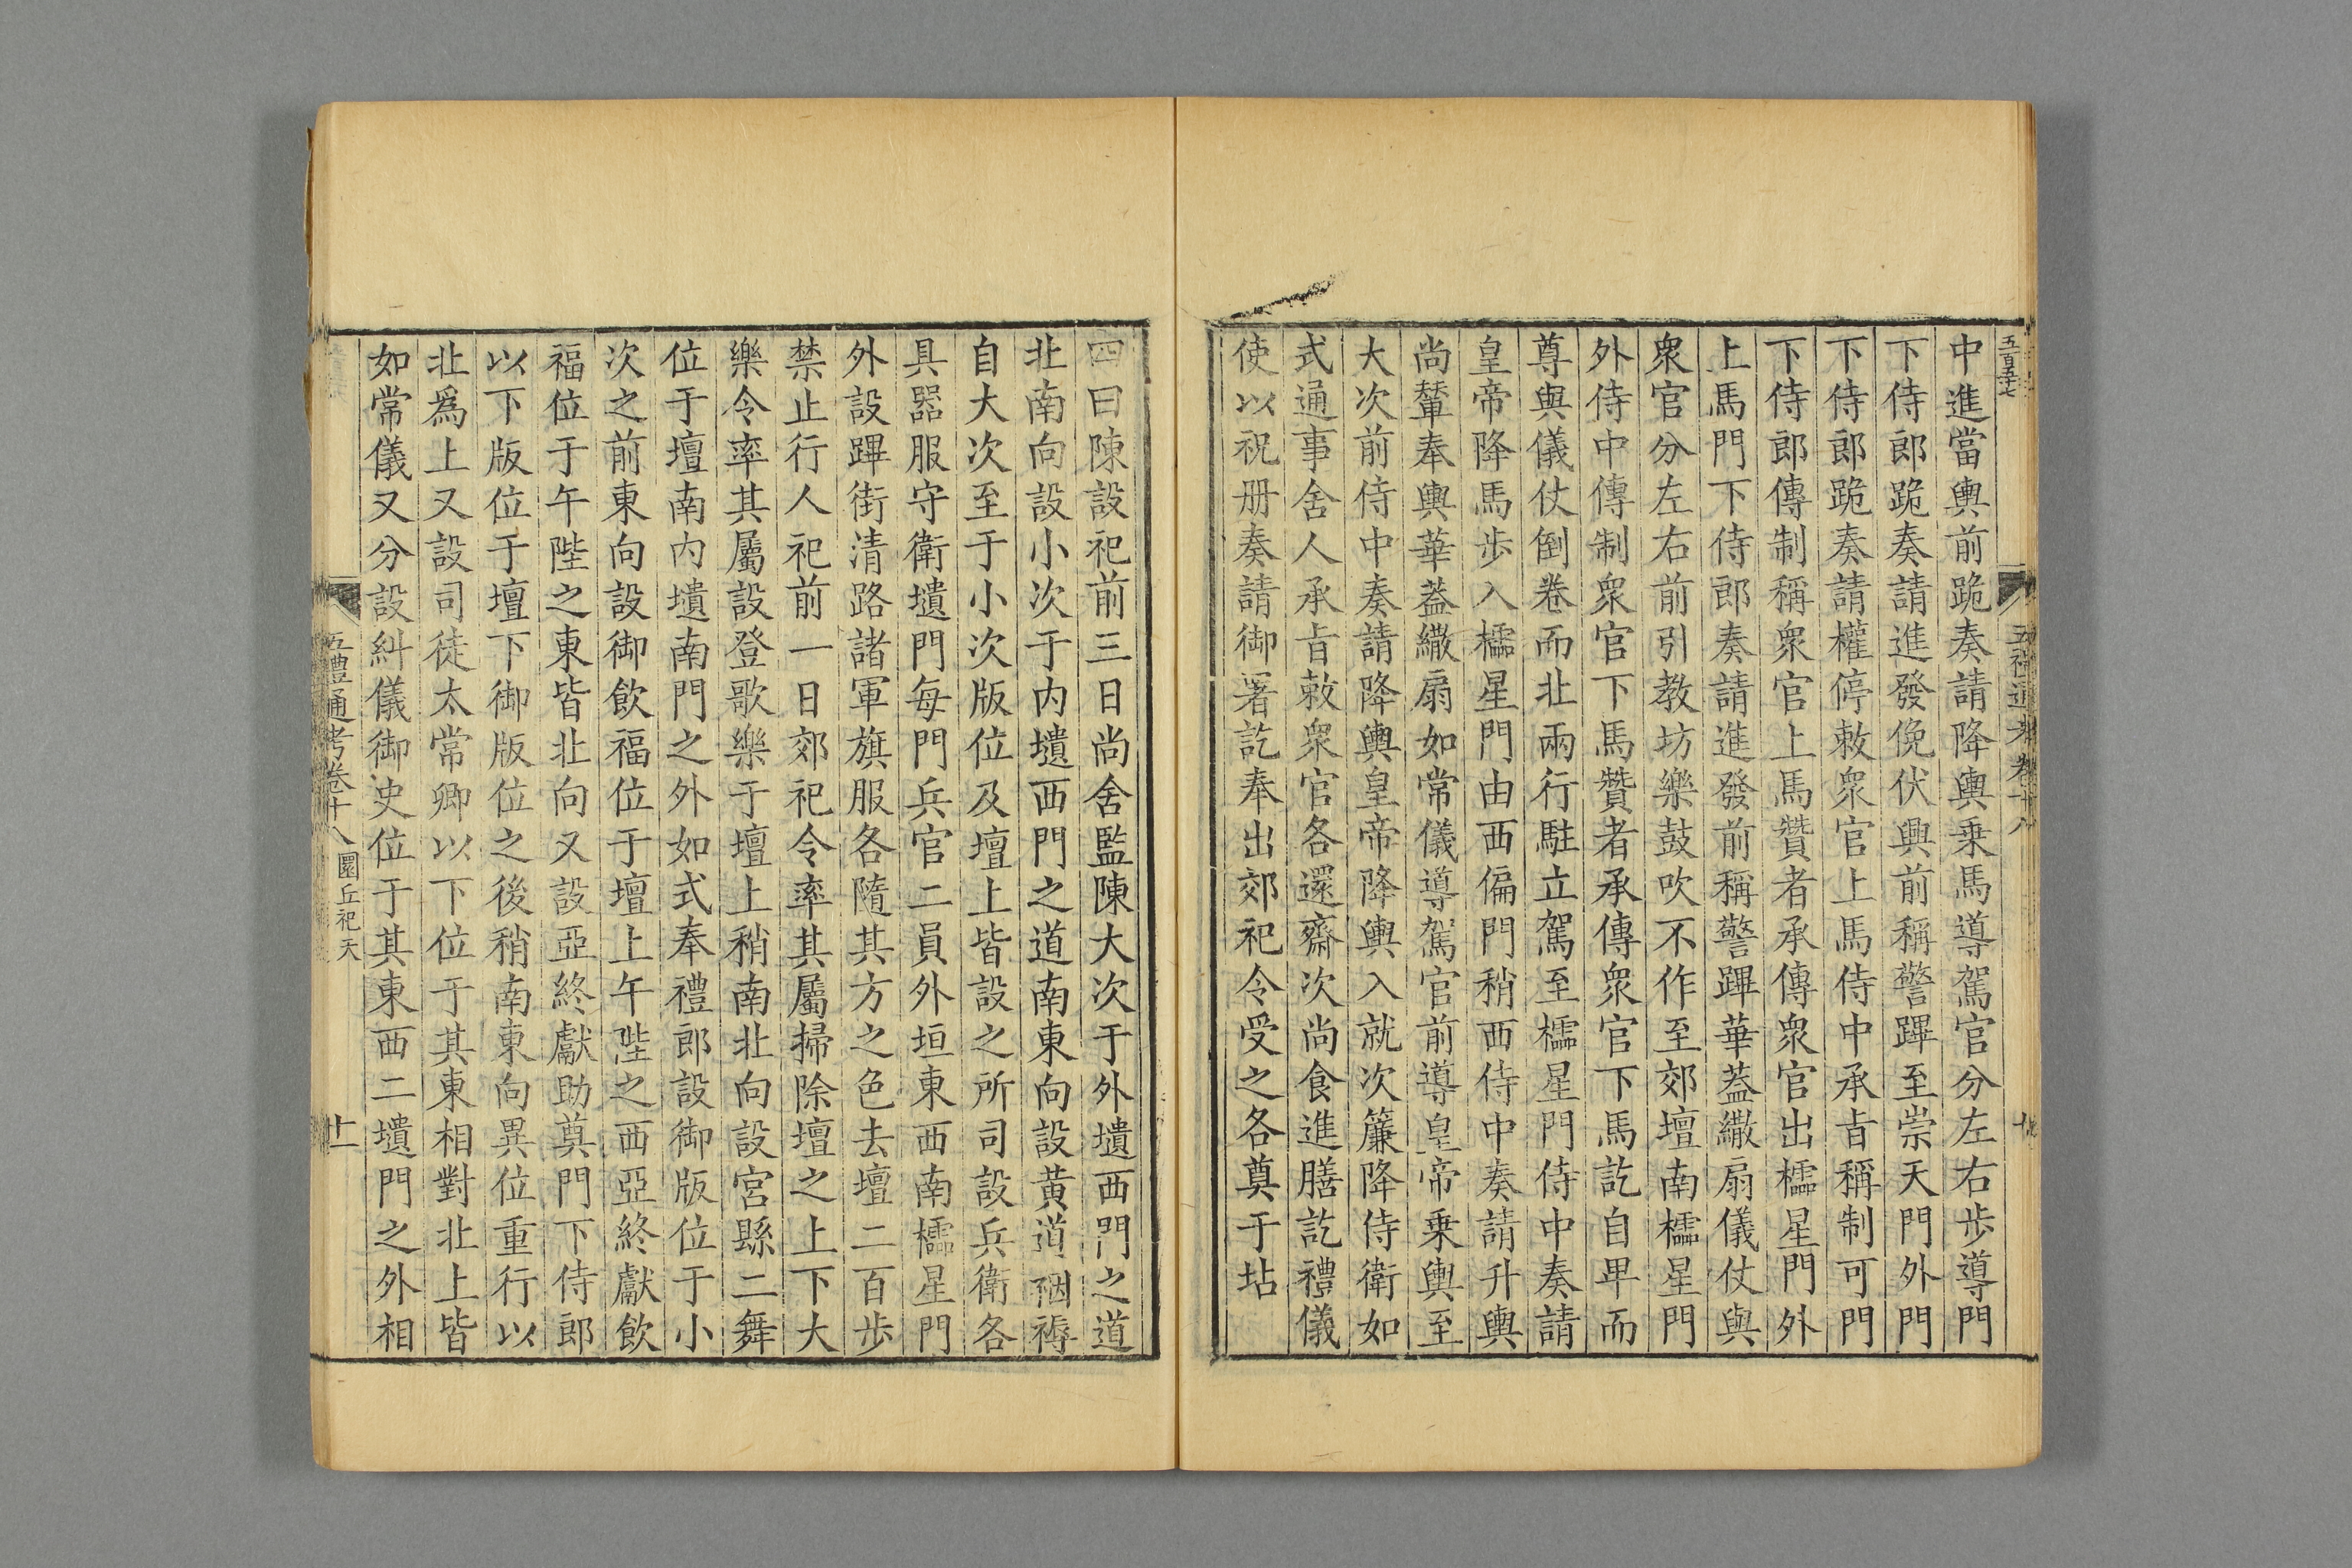 中進當輿前跪奏請降輿乗馬導駕官分左右步導門
下侍郎跪奏請進發俛伏興前稱警蹕至崇天門外門
下侍郎跪奏請權停敕衆官上馬侍中承㫖稱制可門
下侍郎傳制稱衆官上馬贊者承傳衆官出櫺星門外
上馬門下侍郎奏請進發前稱警蹕華葢繖扇儀仗與
衆官分左右前引教坊樂鼓吹不作至郊壇南櫺星門
外侍中傳制衆官下馬贊者承傳衆官下馬訖自𤰞而
尊與儀仗倒卷而北兩行駐立駕至櫺星門侍中奏請
皇帝降馬步入櫺星門由西偏門稍西侍中奏請升輿
尚輦奉輿華葢繖扇如常儀導駕官前導皇帝乗輿至
大次前侍中奏請降輿皇帝降輿入就次簾降侍衛如
式通事舍人承㫖敕衆官各還齋次尚食進膳訖禮儀
使以祝册奏請御署訖奉出郊祀令受之各奠于坫
四曰陳設祀前三日尚舍監陳大次于外壝西門之道
北南向設小次于内壝西門之道南東向設黄道裀褥
自大次至于小次版位及壇上皆設之所司設兵衛各
具器服守衛壝門每門兵官二員外垣東西南櫺星門
外設蹕街清路諸軍旗服各隨其方之色去壇二百步
禁止行人祀前一日郊祀令率其屬掃除壇之上下大
樂令率其屬設登歌樂于壇上稍南北向設宮縣二舞
位于壇南内壝南門之外如式奉禮郎設御版位于小
次之前東向設御飲福位于壇上午陛之西亞終獻飲
福位于午陛之東皆北向又設亞終獻助奠門下侍郎
以下版位于壇下御版位之後稍南東向異位重行以
北爲上又設司徒太常卿以下位于其東相對北上皆
如常儀又分設糾儀御史位于其東西二壝門之外相
五禮通考卷十八 圜丘祀天 十一